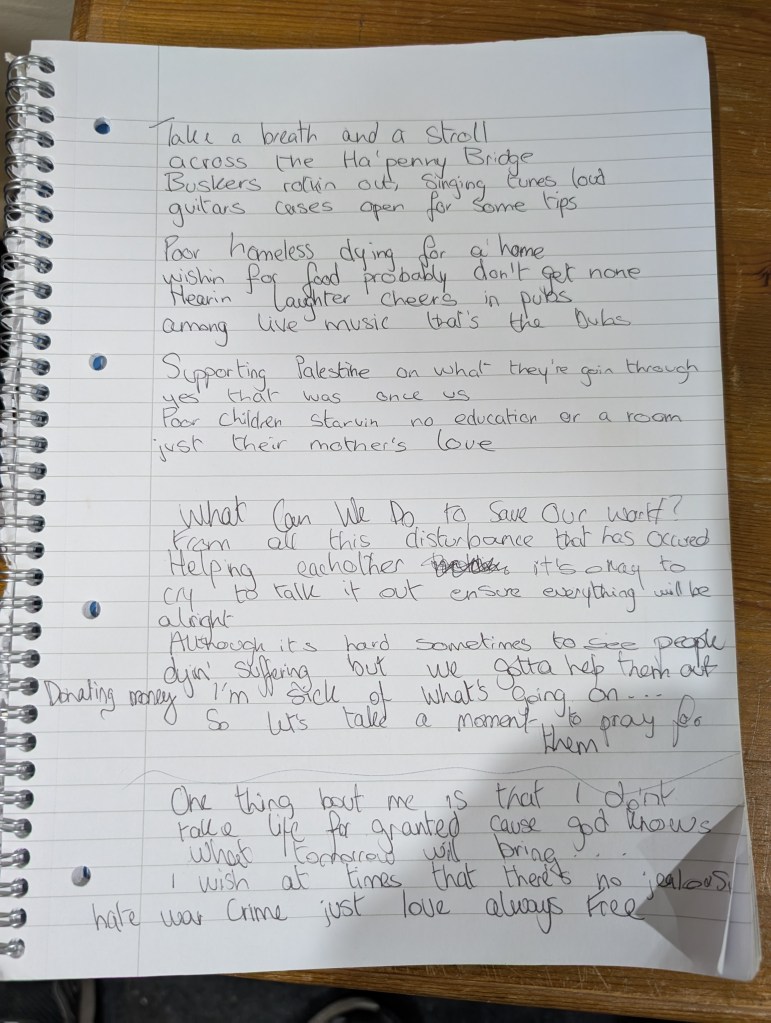 Take a breath and a stroll
across the Ha'penny Bridge
Buskers rockin out, singing tunes loud
guitars cases open for some tips
Poor homeless dying for a home
wishin for food probably don't get none
Hearin laughter cheers in pubs
among live music that's the Dubs
Supporting Palestine on what they're goin through
yes that was once us
Poor children starvin no education or a room
just their mother's love
What Can We Do to Save Our world?
from all this disturbance that has occured
Helping eachother it's okay to
cry to talk it out ensure everything will be
alright
Although it's hard sometimes to see people
dyin' suffering but we gotta help them out
Donating money I'm sick of what's going on....
So let's take a moment to pray for
them
One thing bout me is that I don't
take life for granted cause god knows
what tomorrow will bring....
I wish at times that there's no jealousy
hate war crime just love always free